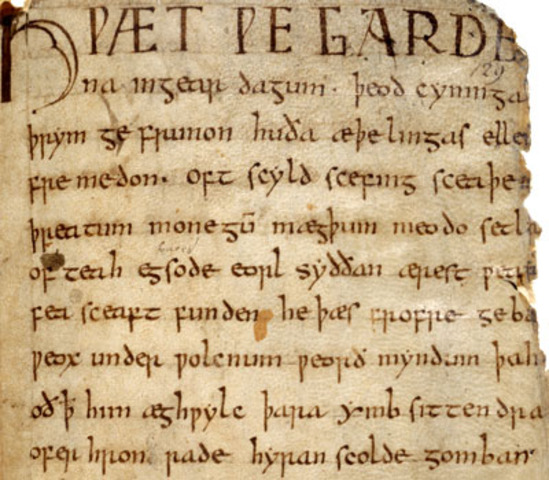 HǷÆT ǷE GARDE
129
na ingear dagum · þeod cyninga
þrym ge frunon huða æþelingas elle
fremedon. oft scyld scefing sceaþe
þreatum monegū mægþum meodo setla
of teah egsode eorl syððan ærest ƿear
fea sceaft funden he þæs frofre geba
ƿeox under ƿolcnum ƿeorð myndum þah
oð ꝥ him æghƿylc þara ymb sittendra
ofer hron rade hyran scolde gomban